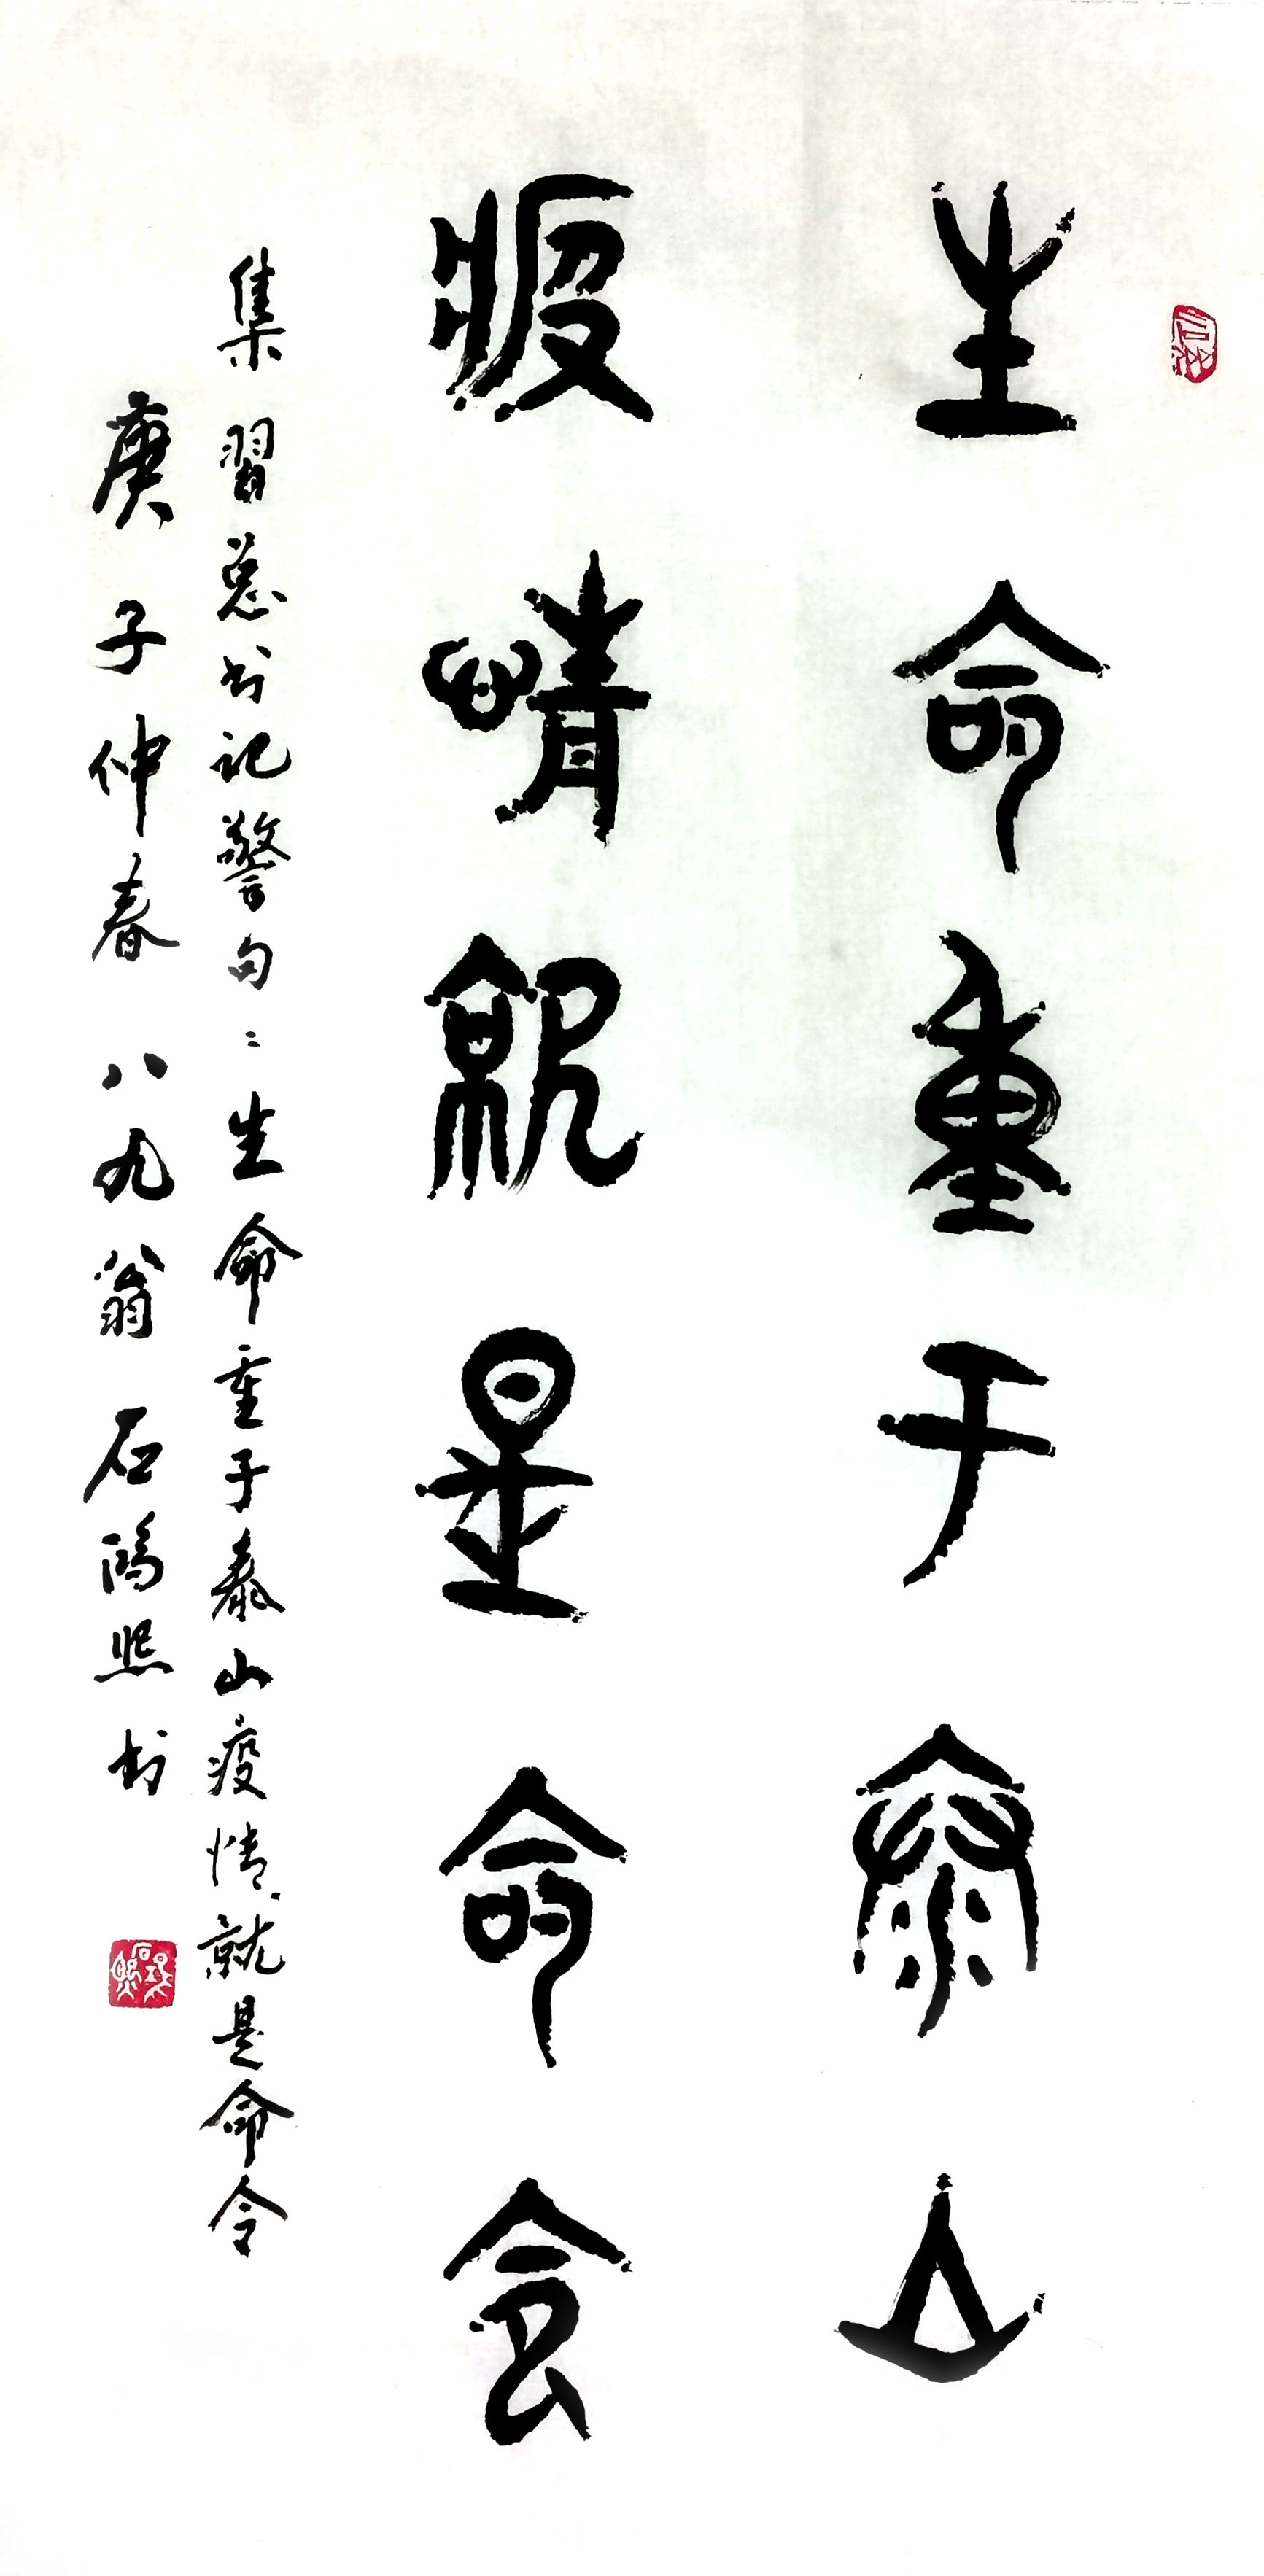 生命重于泰山
疫情就是命令
集習总书记警句：生命重于泰山疫情就是命令
庚子仲春 八九翁 石鴻熙书